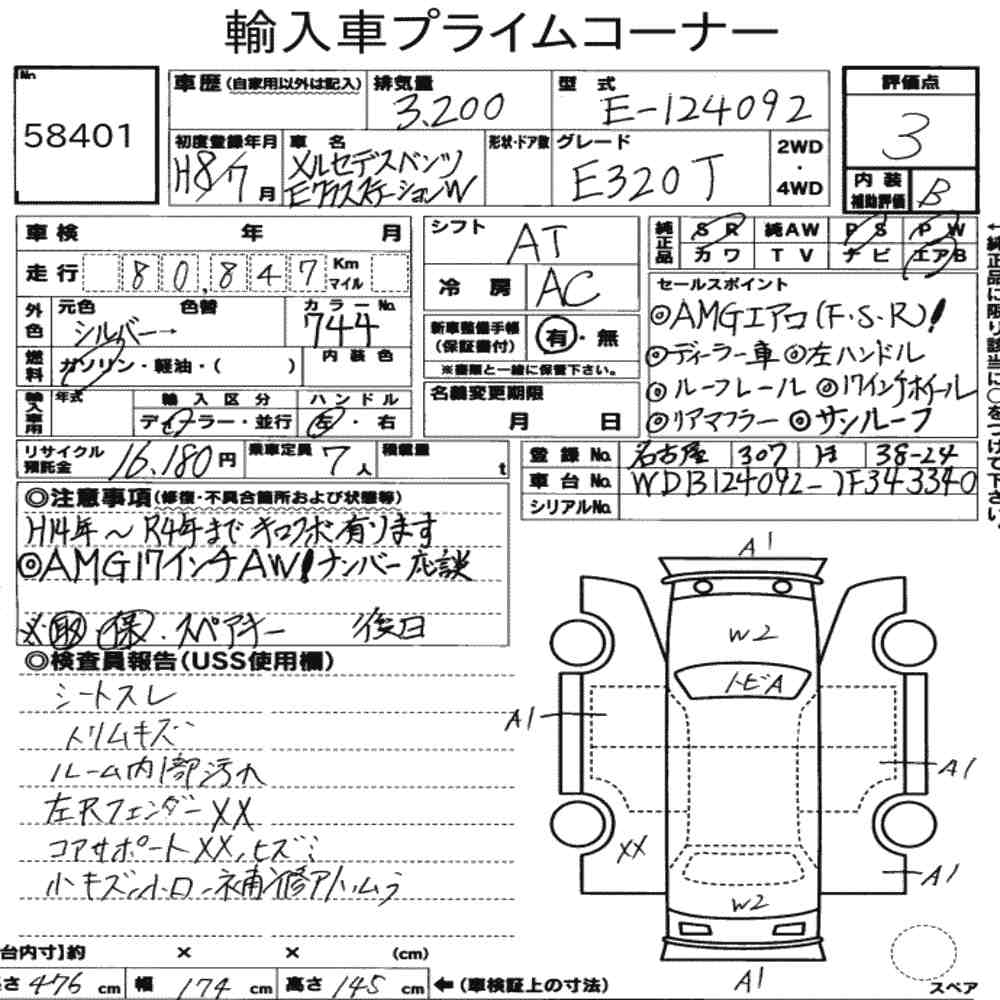 輸入車プライムコーナー
No.
58401
車歴 (自家用以外は記入)
排気量
3.200
型式
E-124092
評価点
3
内装
補助評価
B
初度登録年月
H8/7月
車名
メルセデスベンツ
EクラスステーションW
形状・ドア数
グレード
E320T
2WD
・
4WD
車検 年 月
走行 80,847 Km マイル
外色 元色 色替 カラーNo.
シルバー→ 744
燃料 ガソリン・軽油・( ) 内装色
輸入車用 年式 輸入区分 ハンドル
ディーラー・並行 左・右
シフト AT
冷房 AC
新車整備手帳
(保証書付) 有・無
※書類と一緒に保管下さい。
名義変更期限
月 日
純正品 SR 純AW PS PW
カワ TV ナビ エアB
セールスポイント
◎AMGエアロ(F・S・R)!
◎ディーラー車 ◎左ハンドル
◎ルーフレール ◎17インチホイール
◎リアマフラー ◎サンルーフ
←純正品に限り該当に○をつけて下さい。
リサイクル預託金 16,180円
乗車定員 7人
積載量 t
登録No. 名古屋 307 ほ 38-24
車台No. WDB124092-1F343340
シリアルNo.
◎注意事項(修復・不具合箇所および状態等)
H14年~R4年まで キロクボ有ります
◎AMG17インチAW!ナンバー応談
※取 保 . スペアキー 後日
◎検査員報告(USS使用欄)
シートスレ
トリムキズ
ルーム内部汚れ
左Rフェンダー XX
コアサポートXX,ヒズミ
小キズ,小凹,補修アトムラ
A1
W2
トビA
A1
A1
XX
A1
W2
A1
スペア
台内寸】約 × × (cm)
さ 476 cm 幅 174 cm 高さ 145 cm ←(車検証上の寸法)